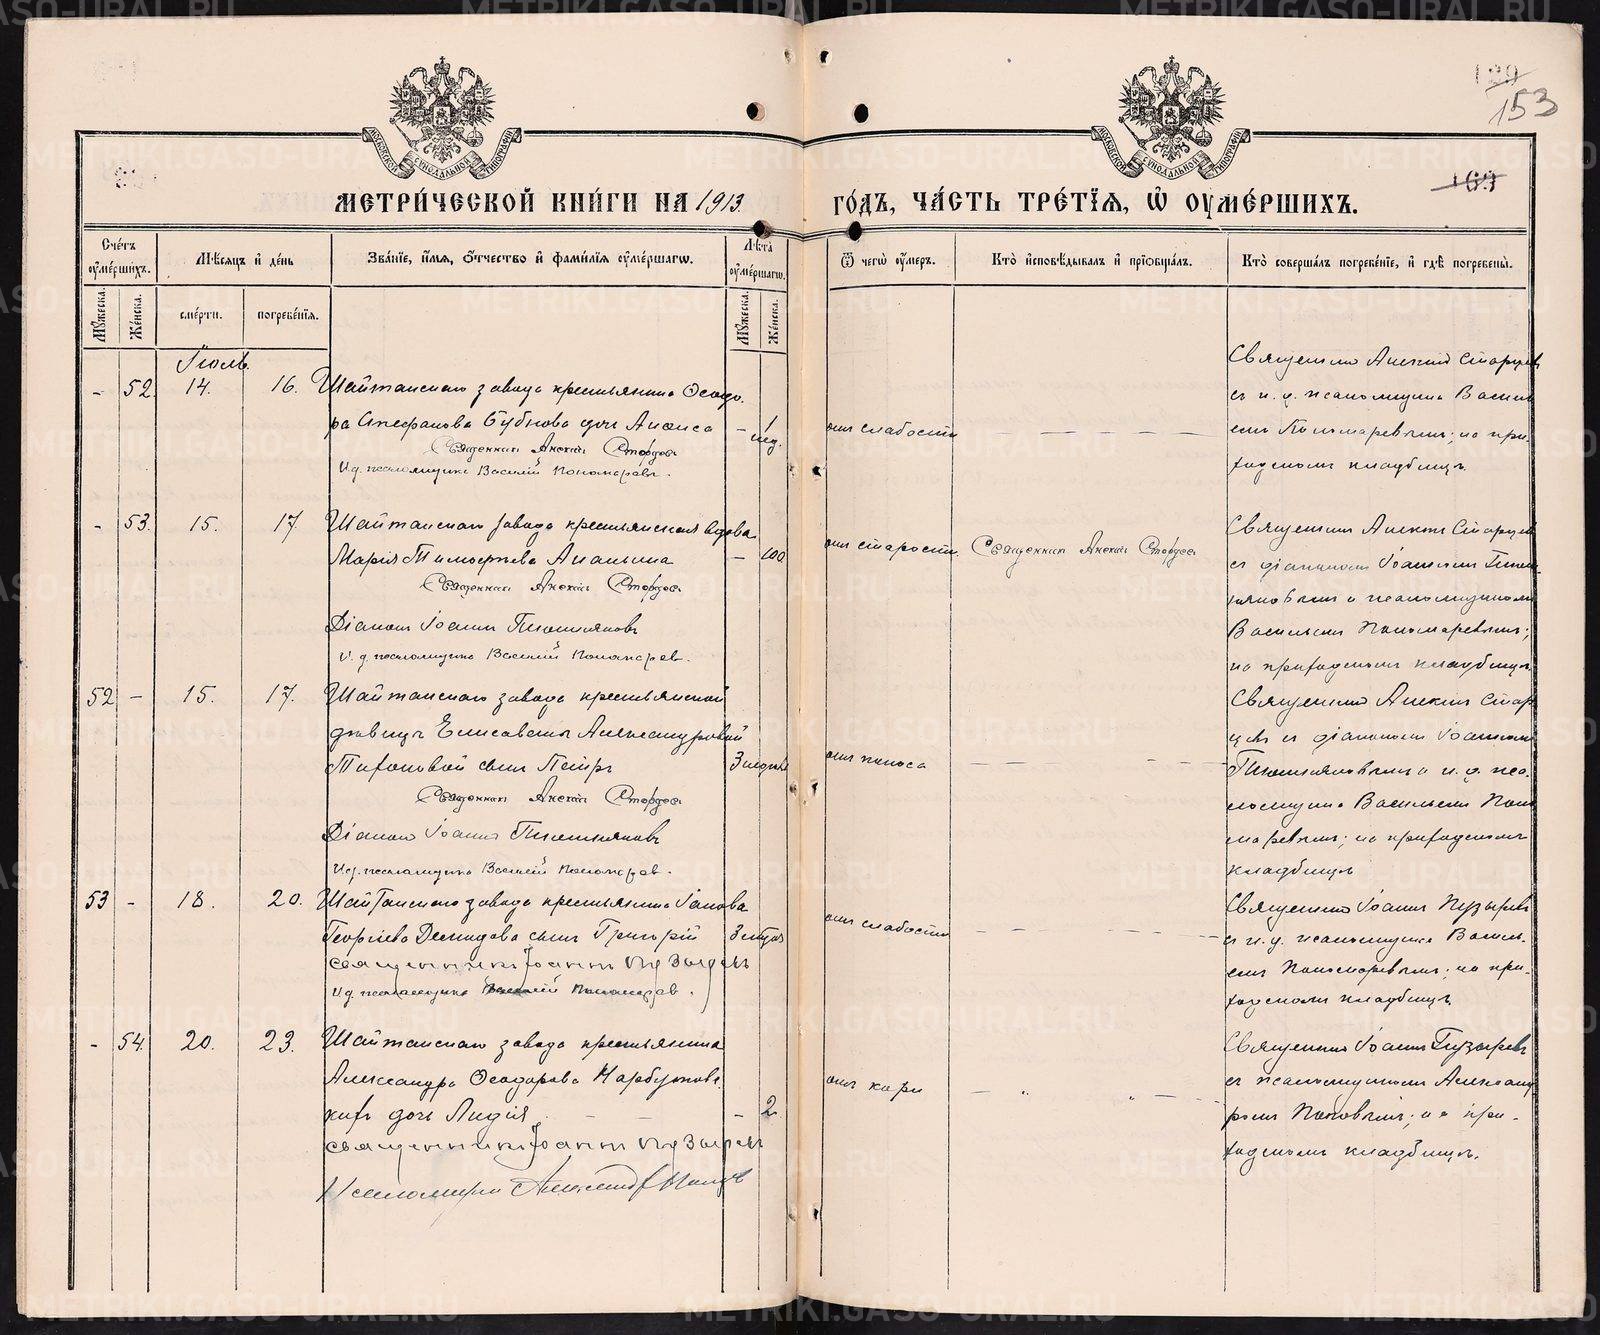 153
МЕТРИ́ЧЕСКОЙ КНИ́ГИ НА 1913
ГО́ДЪ, ЧА́СТЬ ТРЕ́ТЇЯ, Ѽ ОУМЕ́РШИХЪ.
Сче́тъ оуме́ршихъ.
Мѣ́сяцъ и де́нь
Зва́нїе, и́мя, о́тчество и фами́лїя оуме́ршагѡ.
Лѣ́та оуме́ршагѡ.
Ѿ чегѡ̀ оу́меръ.
Кто̀ исповѣ́дывалъ и прїѡбща́лъ.
Кто̀ соверша́лъ погребе́нїе, и гдѣ̀ погребены̀.
Му́жеска.
Же́нска.
сме́рти.
погребе́нїя.
Му́жеска.
Же́нска.
Іюль.
- 52. 14. 16. Шайтанскаго завода крестьянина Ѳеодо-
ра Стефанова Бубнова дочь Анѳиса - 1 нед.
Священник Алексій Старцев
И.д. псаломщика Василій Пономаревъ.
отъ слабости
Священник Алексій Старцев
съ и. д. псаломщика Васил
емъ Пономаревымъ; на при-
ходскомъ кладбищѣ.
- 53. 15. 17. Шайтанскаго завода крестьянская вдова
Марія Тимоѳеева Ананьина - 100
Священник Алексій Старцев
Діаконъ Іоаннъ
И. д. псаломщика Василій Пономарев.
отъ старости. Священник Алексій Старцев
Священник Алексій Старцев
съ діакономъ Іоанномъ
и псаломщикомъ
Васильемъ Пономаревымъ;
на приходскомъ кладбищѣ
52 - 15. 17. Шайтанскаго завода крестьянской
дѣвицы Елисаветы Александровой
Тихоновой сынъ Петръ 3 недѣли
Священник Алексій Старцев
Діаконъ Іоаннъ
И.д. псаломщика Василій Пономарев.
отъ поноса
Священник Алексій Стар
цевъ съ діакономъ Іоанномъ
и и. д. пса-
ломщика Васильемъ Поно
маревымъ; на приходскомъ
кладбищѣ
53 - 18. 20. Шайтанскаго завода крестьянина Іакова
Георгіева Демидова сынъ Григорій 3 мѣсяца
священникъ Іоаннъ Пузыревъ
И.д. псаломщика Василій Пономарев.
отъ слабости
Священник Іоаннъ Пузыревъ
съ и. д. псаломщика Василь-
емъ Пономаревымъ; на при-
ходскомъ кладбищѣ
- 54. 20. 23. Шайтанскаго завода крестьянина
Александра Ѳеодорова Нарбутов-
кихъ дочь Лидія - 2.
священникъ Іоаннъ Пузыревъ
Псаломщикъ Александръ Поповъ
отъ кори
Священникъ Іоаннъ Пузыревъ
съ псаломщикомъ Александ
ромъ Поповымъ; на при-
ходскомъ кладбищѣ.
METRIKI.GASO-URAL.RU